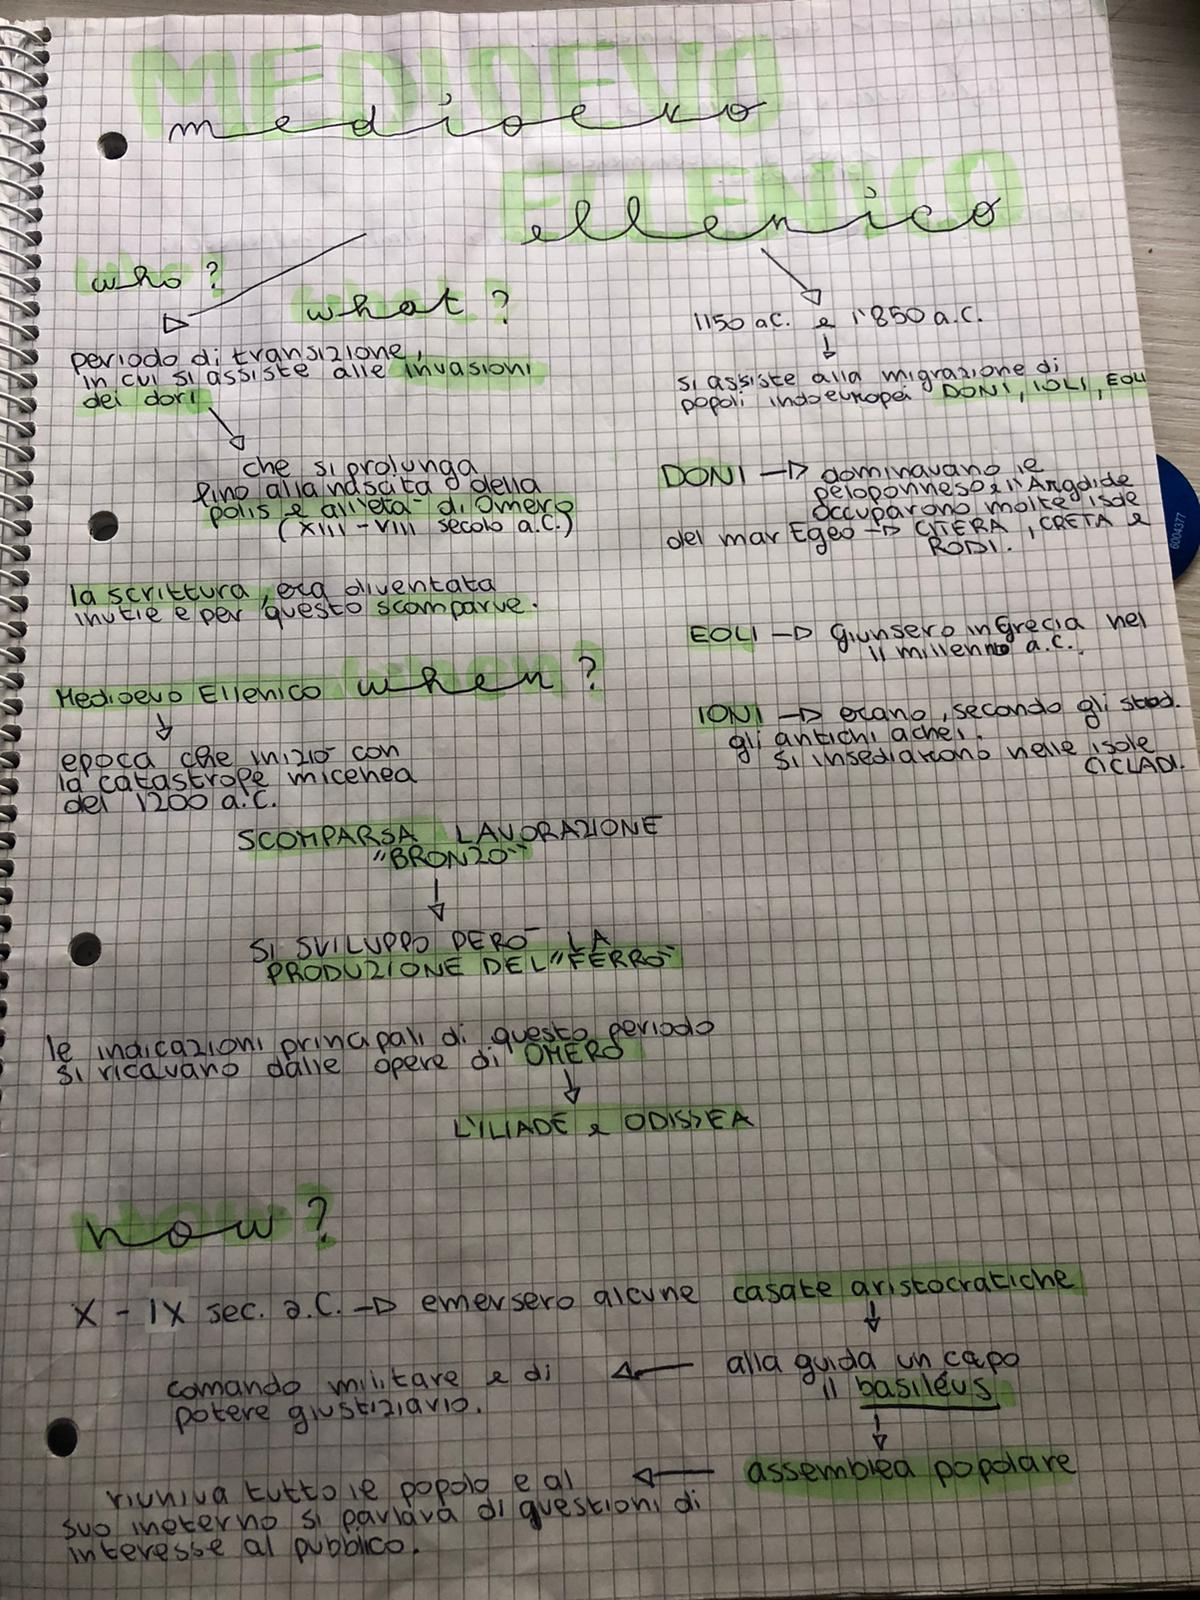 MEDIOEVO
medioevo
ELLENICO
ellenico
who?
what?
periodo di transizione,
in cui si assiste alle invasioni
dei dori
che si prolunga
fino alla nascita della
polis e all'età di Omero
(XIII - VIII secolo a.C.)
la scrittura, era diventata
inutie e per questo scomparve.
Medioevo Ellenico when?
epoca che iniziò con
la catastrope micenea
del 1200 a.C.
1150 a.C. e l'850 a.C.
si assiste alla migrazione di
popoli indoeuropei DONI, IOLI, EOLI
DONI → dominavano ie
peloponneso e l'Argolide
occuparono molte isole
del mar Egeo → CITERA, CRETA e
RODI.
EOLI → giunsero in Grecia nel
II millennio a.C.
IONI → erano, secondo gli stod.
gli antichi achei.
si insediarono nelle isole
CICLADI.
SCOMPARSA LAVORAZIONE
"BRONZO"
SI SVILUPPO PERO' LA
PRODUZIONE DEL "FERRO"
le indicazioni principali di questo periodo
si ricavano dalle opere di OMERO
L'ILIADE e ODISSEA
how?
X - IX sec. a.C. → emersero alcune casate aristocratiche
alla guida un capo
il basiléus
comando militare e di
potere giustiziario.
assemblea popolare
riuniva tutto ie popolo e al
suo ineterno si parlava di questioni di
interesse al pubblico.
6004377